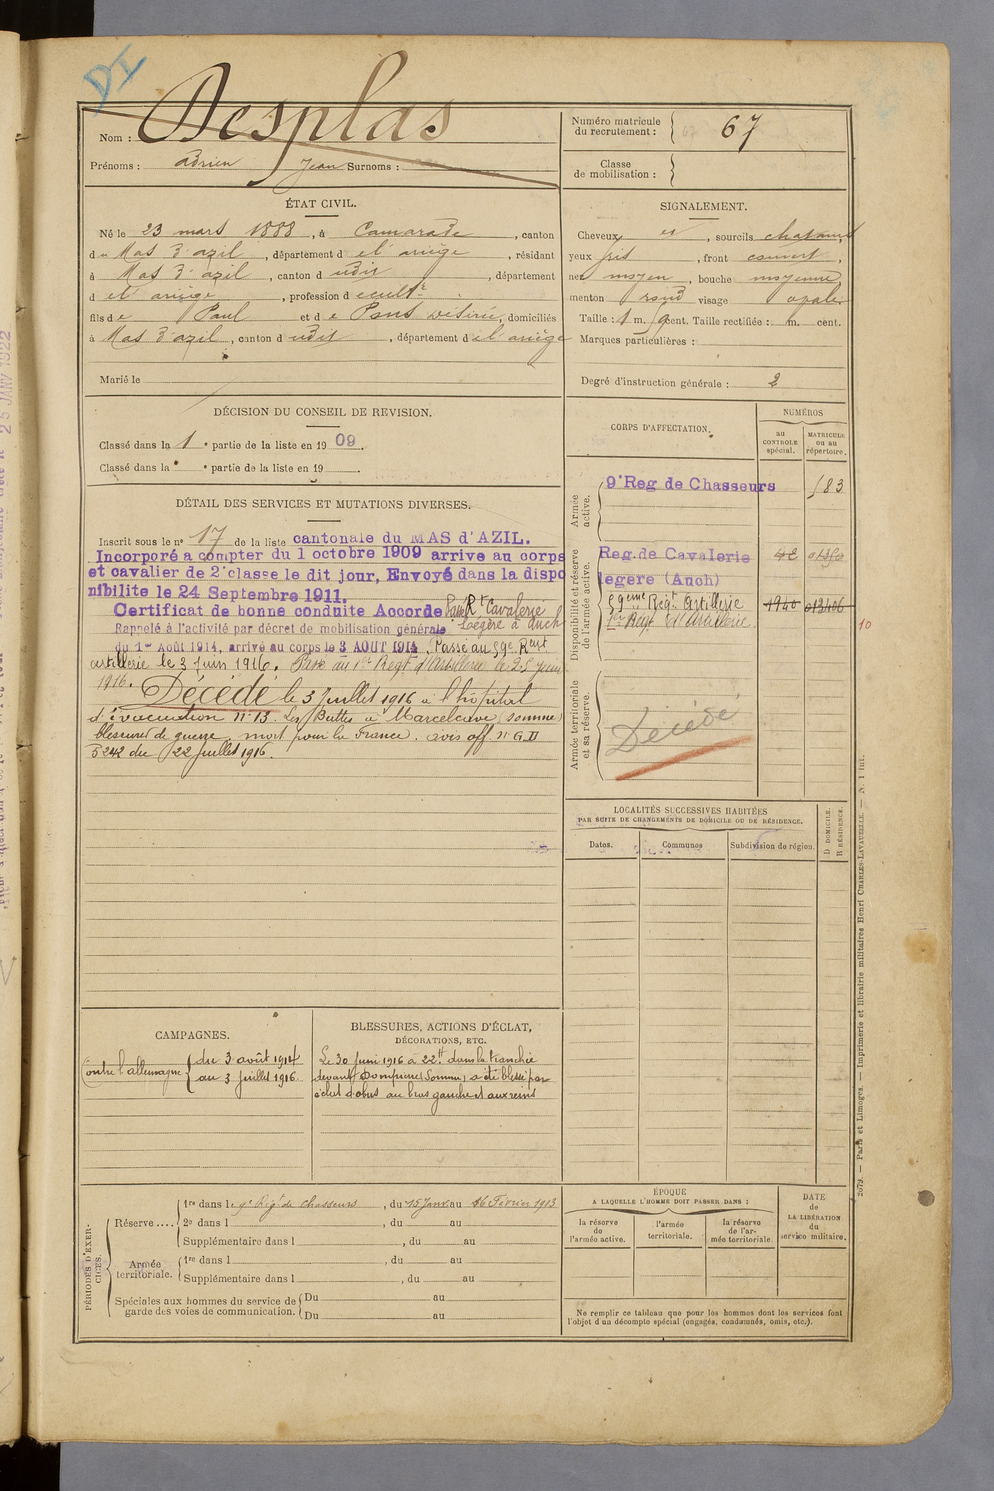 DI
Nom : Desplas
Prénoms : Adrien Jean Surnoms :
Numéro matricule du recrutement : 67
Classe de mobilisation :
ÉTAT CIVIL.
Né le 23 mars 1888, à Camarade, canton
du Mas d'azil, département de l'ariège, résidant
à Mas d'azil, canton dudit, département
de l'ariège, profession d cultr
fils de Paul et de Pons Désirée, domiciliés
à Mas d'azil, canton dudit, département de l'ariège
Marié le
SIGNALEMENT.
Cheveux et, sourcils chatains,
yeux gris, front couvert,
nez moyen, bouche moyenne,
menton rond visage ovale
Taille : 1 m. cent. Taille rectifiée : m. cent.
Marques particulières :
Degré d'instruction générale : 2
DÉCISION DU CONSEIL DE REVISION.
Classé dans la 1e partie de la liste en 1909.
Classé dans la e partie de la liste en 19 .
DÉTAIL DES SERVICES ET MUTATIONS DIVERSES.
Inscrit sous le n° 17 de la liste cantonale du MAS d'AZIL.
Incorporé a compter du 1 octobre 1909 arrive au corps
et cavalier de 2e classe le dit jour, Envoyé dans la dispo
nibilite le 24 Septembre 1911.
Certificat de bonne conduite Accordé Passé Rt Cavalerie
Légère à Auch
Rappelé à l'activité par décret de mobilisation générale
du 1er Août 1914, arrivé au corps le 3 AOUT 1914. Passé au 59e Rgnt
artillerie le 3 Juin 1916. Passé au 1er Regt d'Artillerie le 25 juin
1916. Décédé le 3 Juillet 1916 à l'hôpital
d'évacuation n° 13. Les Buttes à Marcelcave (Somme)
blessures de guerre, mort pour la France. avis off. n° G.D
5242 du 22 Juillet 1916.
CORPS D'AFFECTATION.
NUMÉROS
au CONTROLE spécial.
MATRICULE ou au répertoire.
Armée active.
9e Reg de Chasseurs 183
Disponibilité et réserve de l'armée active.
Reg. de Cavalerie
légere (Auch)
59eme Regt Artillerie 1940
1er Regt d'Artillerie
10
Armée territoriale et sa réserve.
Décédé
LOCALITÉS SUCCESSIVES HABITÉES
PAR SUITE DE CHANGEMENTS DE DOMICILE OU DE RÉSIDENCE.
Dates. Communes Subdivision de région. D DOMICILE. R RÉSIDENCE.
CAMPAGNES.
Contre l'allemagne du 3 août 1914
au 3 juillet 1916.
BLESSURES, ACTIONS D'ÉCLAT,
DÉCORATIONS, ETC.
Le 30 Juin 1916 à 22h dans la tranchée
devant Dompierre (Somme) a été blessé par
éclat d'obus au bras gauche et aux reins
PÉRIODES D'EXERCICES.
Réserve....
1re dans le 9e Régt de Chasseurs, du 15 Janv au 16 Février 1913
2e dans l , du au
Supplémentaire dans l , du au
Armée territoriale.
1re dans l , du au
Supplémentaire dans l , du au
Spéciales aux hommes du service de garde des voies de communication.
Du au
Du au
ÉPOQUE
A LAQUELLE L'HOMME DOIT PASSER DANS :
la réserve de l'armée active.
l'armée territoriale.
la réserve de l'armée territoriale.
DATE DE LA LIBÉRATION du service militaire.
Ne remplir ce tableau que pour les hommes dont les services font
l'objet d'un décompte spécial (engagés, condamnés, omis, etc.).
2079. — Paris et Limoges. — Imprimerie et librairie militaires Henri CHARLES-LAVAUZELLE. — N. 1 int.
25 JANV 1922